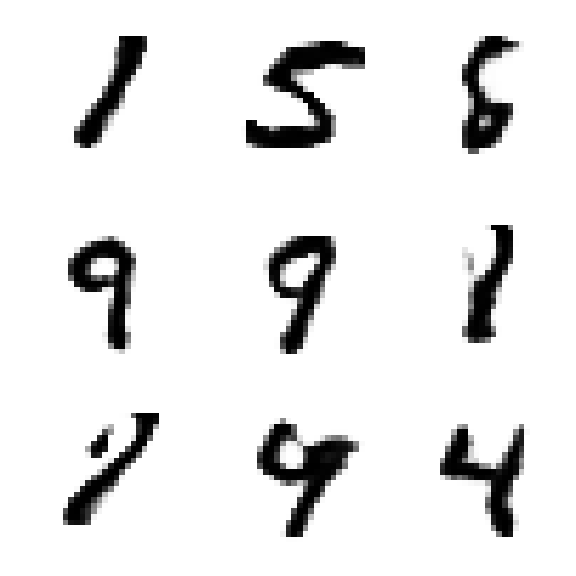 1 5 8
9 9 1
9 4